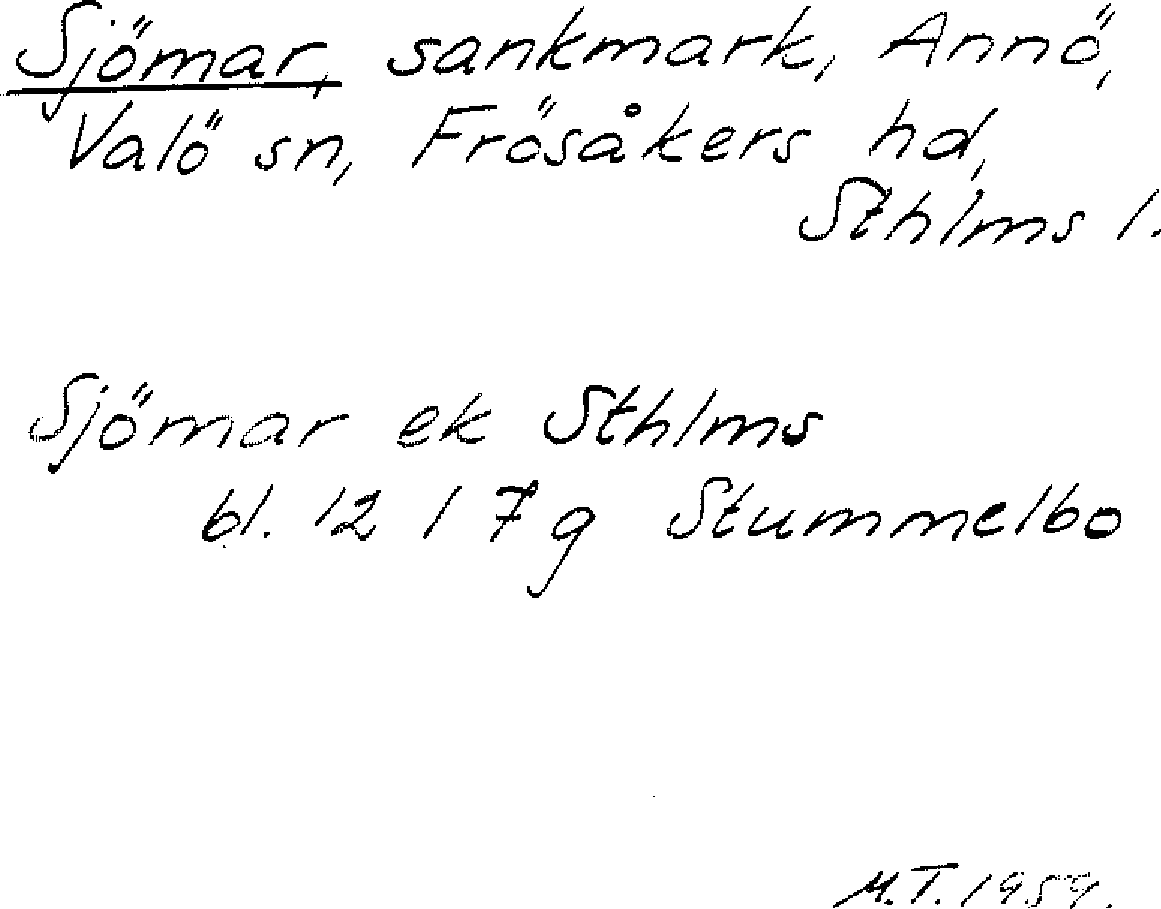 Sjömar, sankmark, Annö,
Valö sn, Frösåkers hd,
Sthlms l.
Sjömar ek Sthlms
bl. 12 I 7g Stummelbo
M.T. 1959.